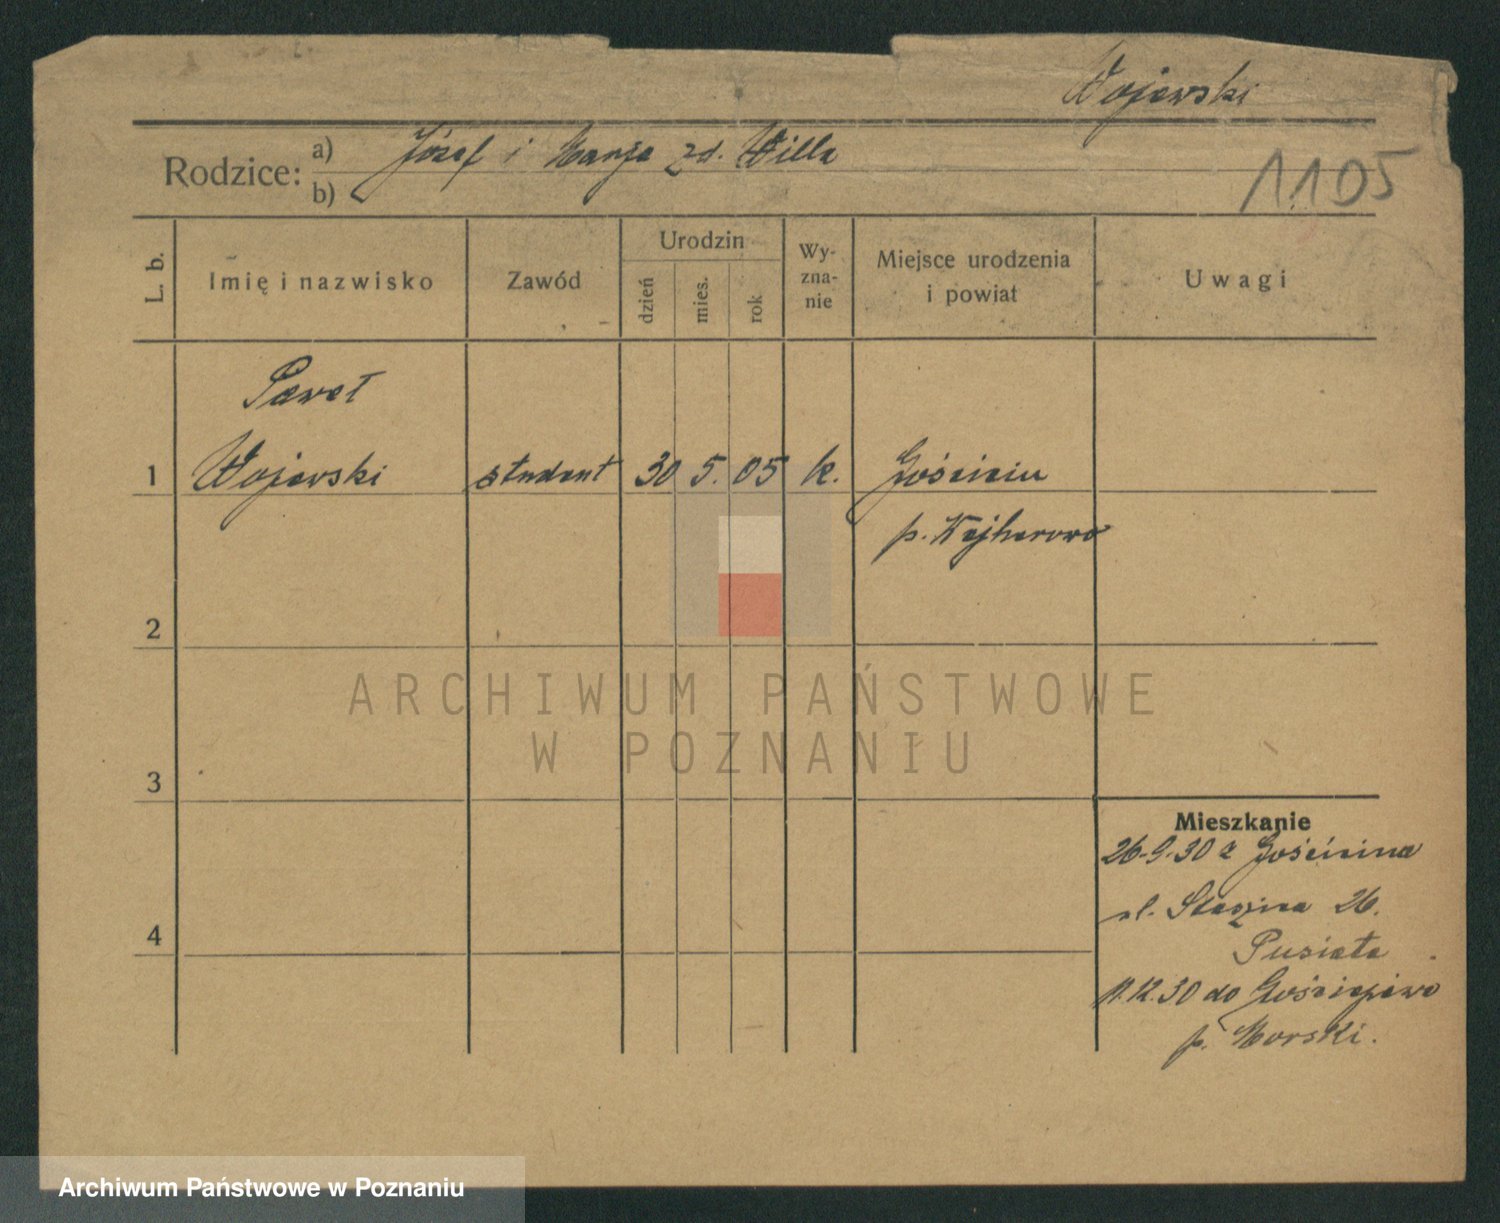 Wojewski
Rodzice: a) Józef i Marja zd. Willa
b)
1105
L. b. Imię i nazwisko Zawód Urodzin dzień mies. rok Wy-zna-nie Miejsce urodzenia i powiat Uwagi
Paweł
1 Wojewski student 30 5. 05 k. Gościcin
p. Wejherowo
2
ARCHIWUM PAŃSTWOWE
W POZNANIU
3
Mieszkanie
26-9-30 z Gościcina
ul. Staszica 26.
4
Pusiata
11.12.30 do
p. Morski.
Archiwum Państwowe w Poznaniu